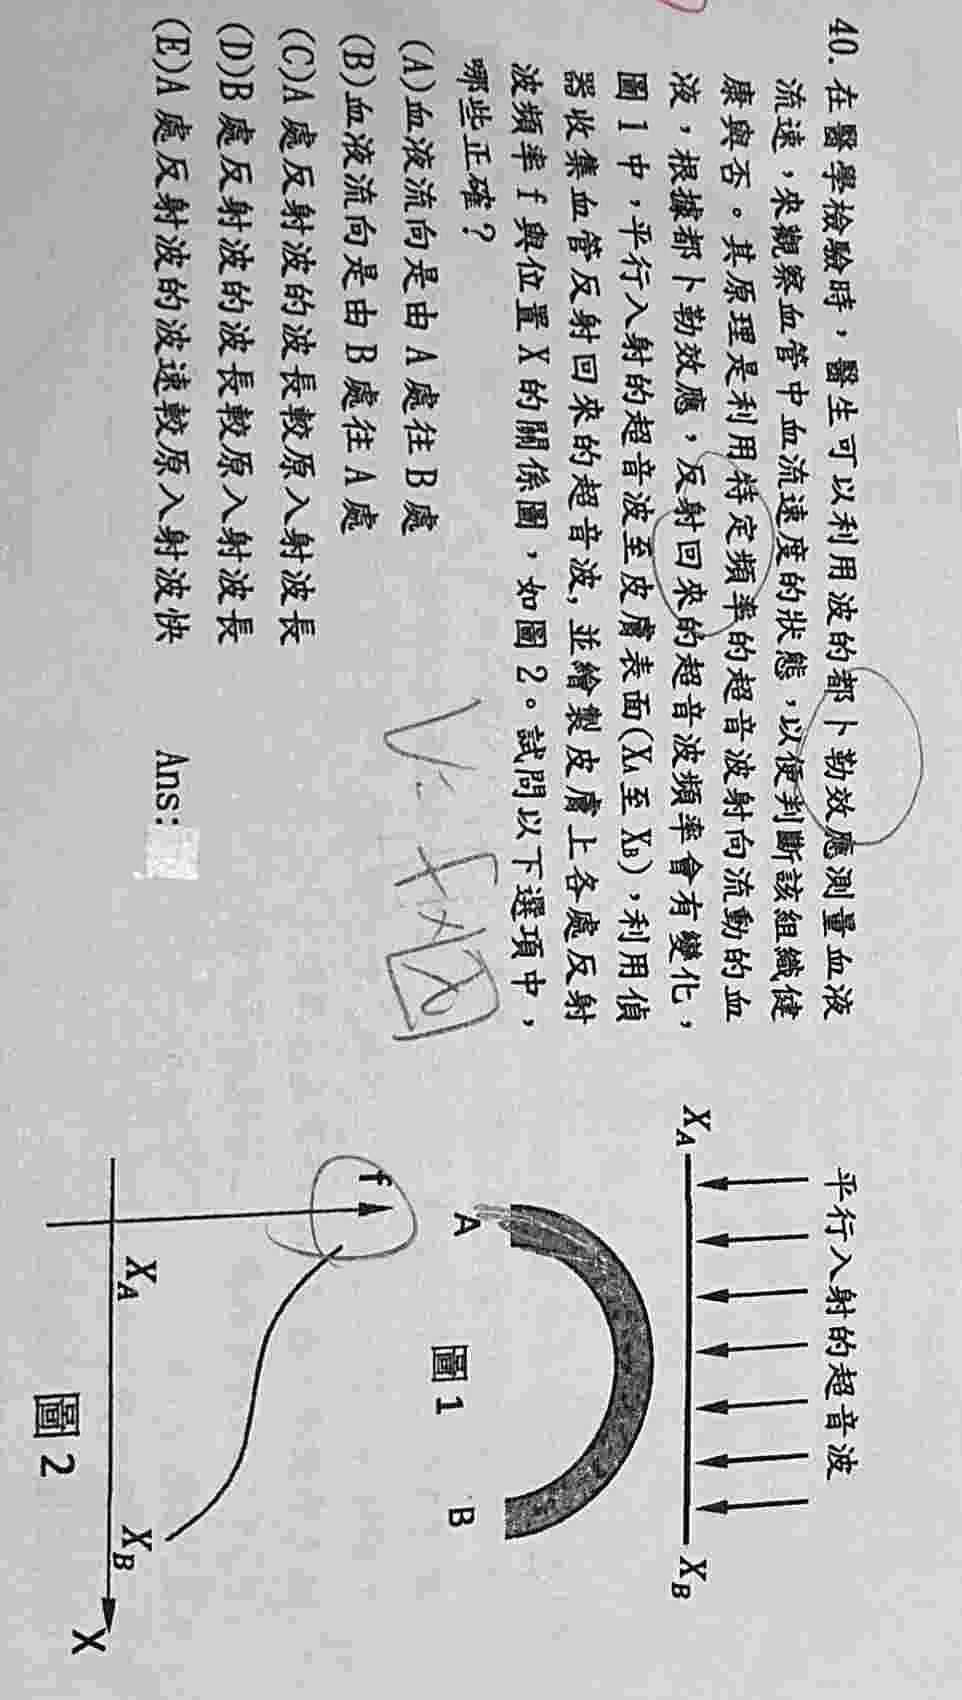 40. 在醫學檢驗時，醫生可以利用波的都卜勒效應測量血液
流速，來觀察血管中血流速度的狀態，以便判斷該組織健
康與否。其原理是利用特定頻率的超音波射向流動的血
液，根據都卜勒效應，反射回來的超音波頻率會有變化，
圖1中，平行入射的超音波至皮膚表面(XA至XB)，利用偵
器收集血管反射回來的超音波，並繪製皮膚上各處反射
波頻率f與位置X的關係圖，如圖2。試問以下選項中，
哪些正確？
(A)血液流向是由A處往B處
(B)血液流向是由B處往A處
(C)A處反射波的波長較原入射波長
(D)B處反射波的波長較原入射波長
(E)A處反射波的波速較原入射波快
Ans:
V = f × λ
平行入射的超音波
XA
XB
A
B
圖1
f
XA
XB
X
圖2